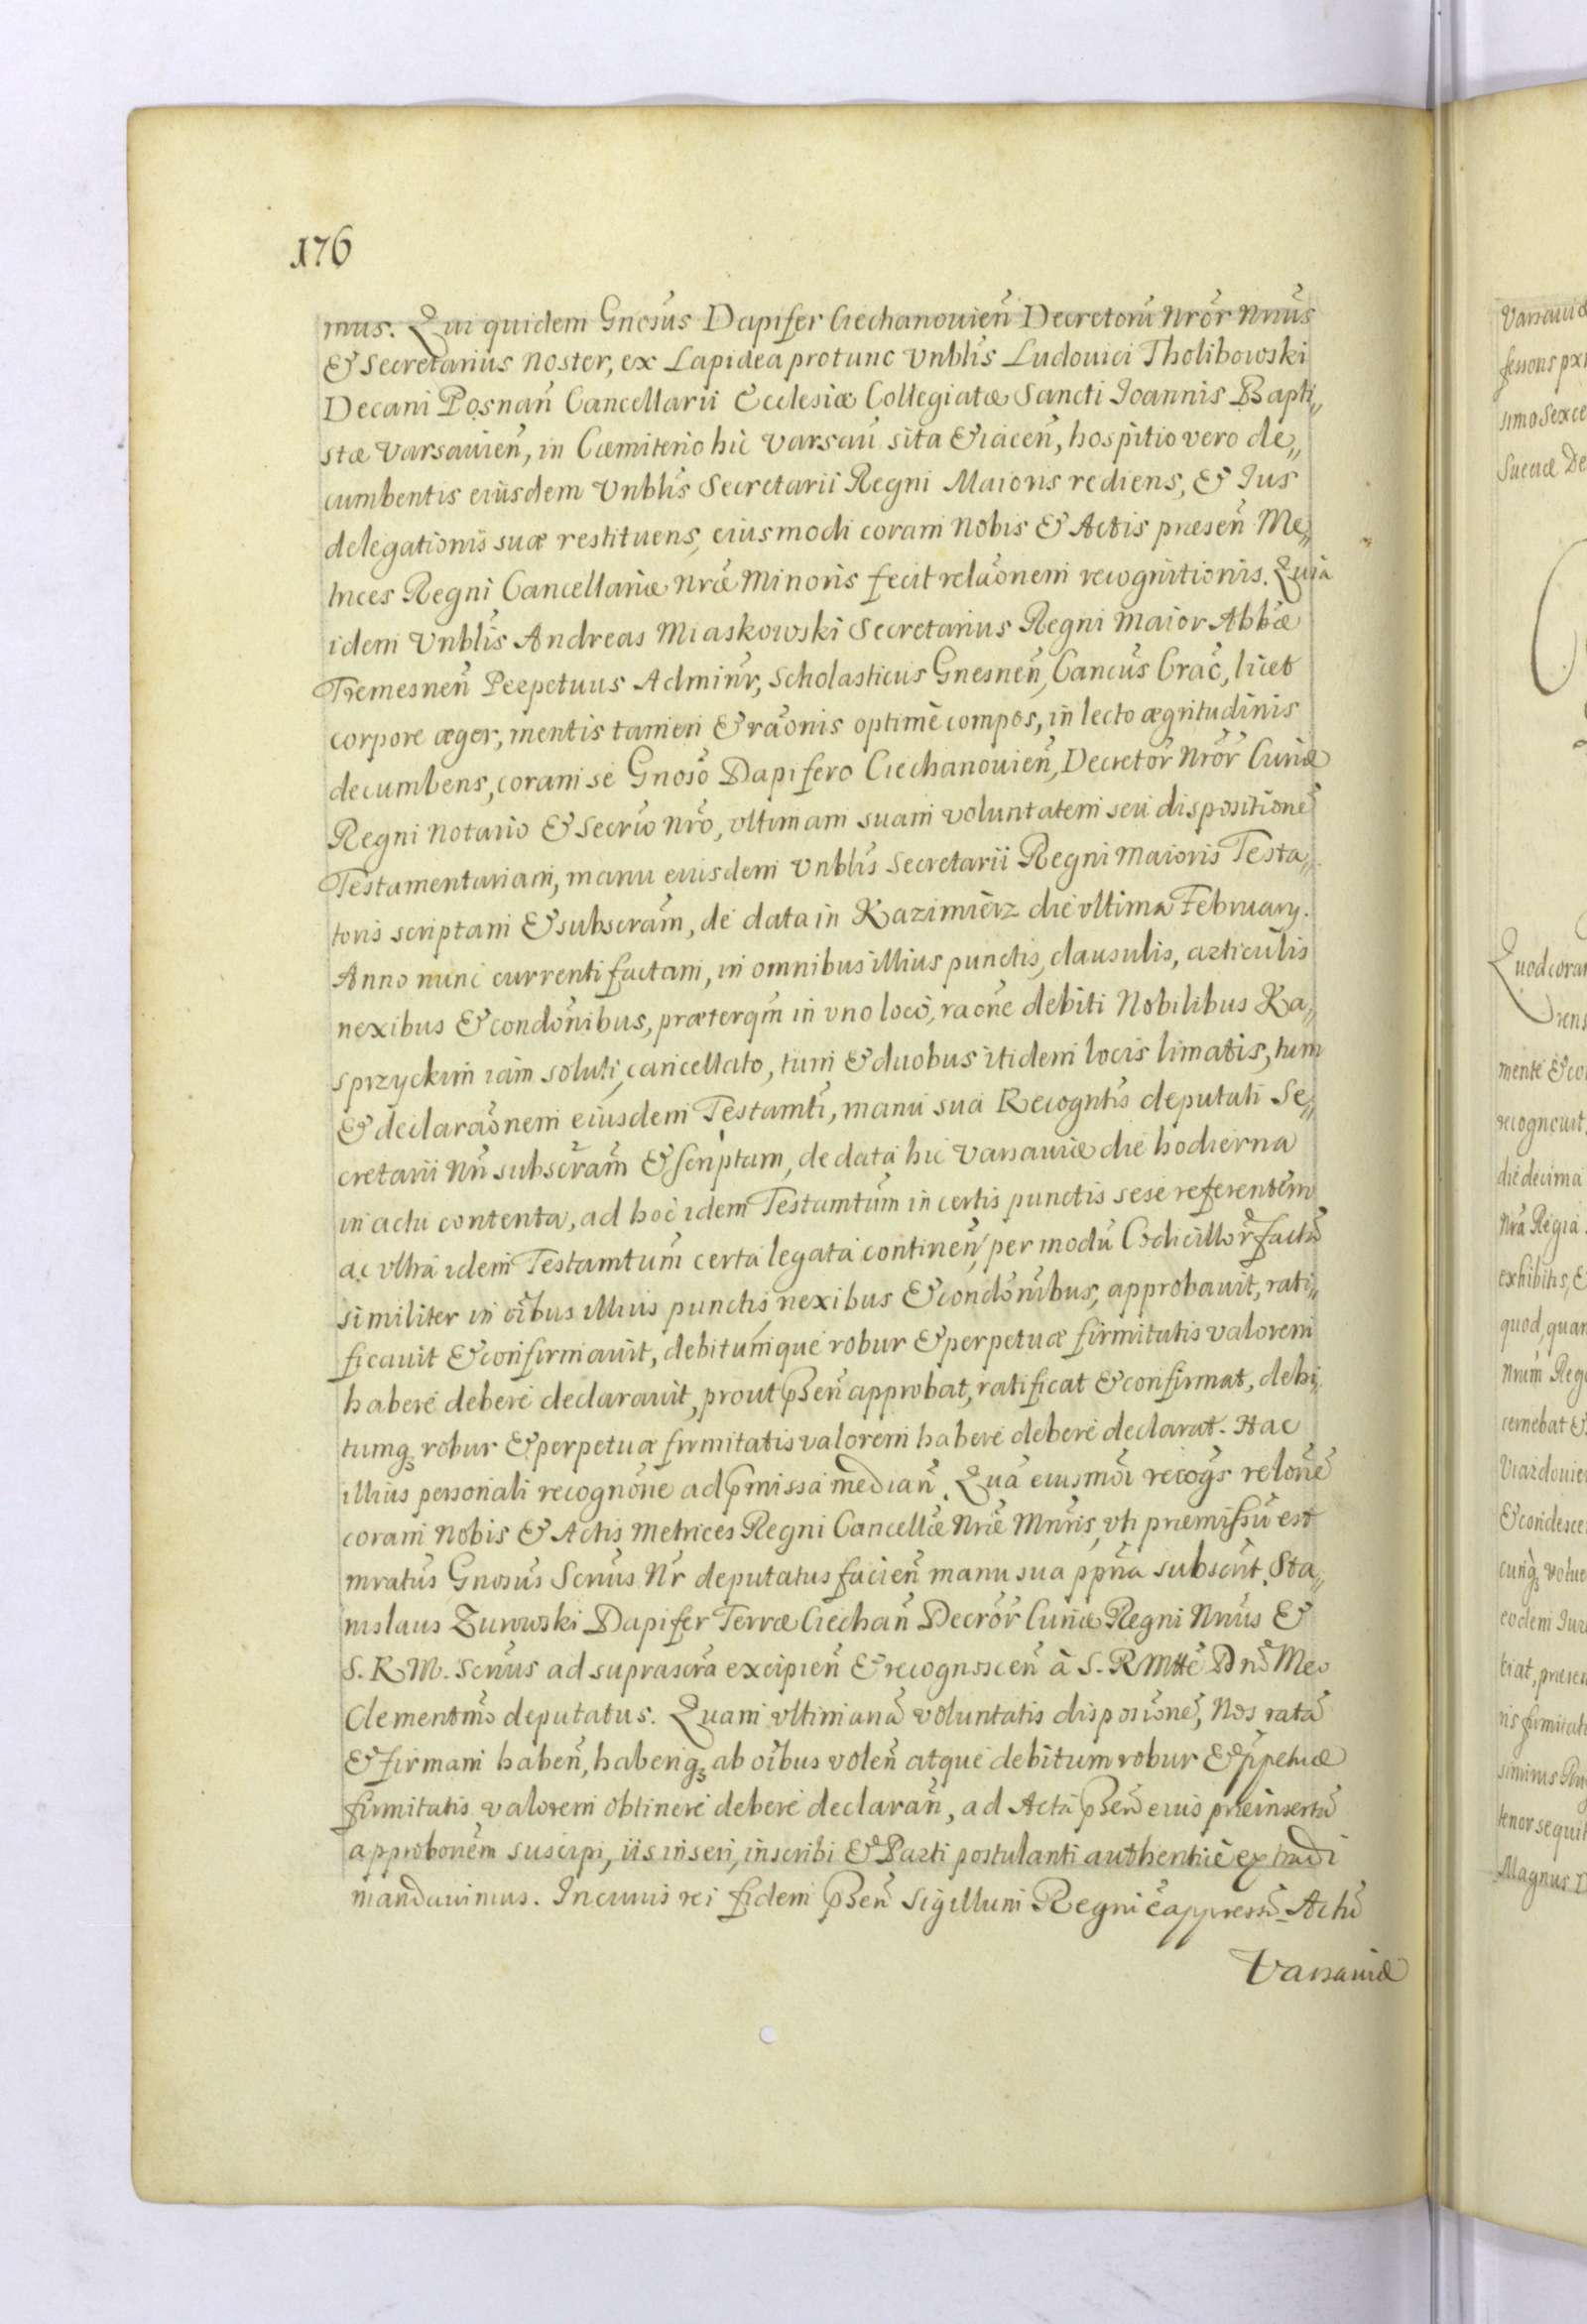 176
mus. Qui quidem Gnosus Dapifer Ciechanouien Decretoru Nror Nrius
& Secretarius Noster, ex Lapidea protunc Vnblis Ludouici Tholibowski
Decani Posnan Cancellarii Ecclesiæ Collegiatæ Sancti Joannis Bapti„
stæ Varsauien, in Cæmiterio hic Varsau sita & iacen, hospitio vero de„
cumbentis eiusdem Vnblis Secretarii Regni Maioris rediens, & Jus
delegationis suæ restituens, eiusmodi coram Nobis & Actis præsen Me„
trices Regni Cancellariæ Nræ Minoris fecit relaonem recognitionis. Quia
idem Vnblis Andreas Miaskowski Secretarius Regni Maior Abbæ
Tremesnen Perpetuus Adminr, Scholasticus Gnesnen, Cancus Crac, licet
corpore æger, mentis tamen & raonis optime compos, in lecto ægritudinis
decumbens, coram se Gnoso Dapifero Ciechanouien, Decretor Nror Curiæ
Regni Notario & Secrio Nro, vltimam suam voluntatem seu dispositione
Testamentariam, manu eiusdem Vnblis Secretarii Regni Maioris Testa„
toris scriptam & subscram, de data in Kazimierz die vltima February.
Anno nunc currenti factam, in omnibus illius punctis, clausulis, articulis
nexibus & condonibus, præterqm in vno loco, raone debiti Nobilibus Ka„
sprzyckim iam soluti, cancellato, tum & duobus itidem locis limatis, tum
& declaraonem eiusdem Testamti, manu sua Recogntis deputati Se„
cretarii Nri subscram & scriptam, de data hic Varsauiæ die hodierna
in actu contenta, ad hoc idem Testamtum in certis punctis sese referentem
ac vltra idem Testamtum certa legata continen, per modu Codicillor factu
similiter in oibus illius punctis, nexibus & condonibus, approbauit, rati„
ficauit & confirmauit, debitumque robur & perpetuæ firmitatis valorem
habere debere declarauit, prout psen approbat, ratificat & confirmat, debi„
tumq robur & perpetuæ firmitatis valorem habere debere declarat. Hac
illius personali recognone ad pmissa median. Qua eiusmoi recogs relone
coram Nobis & Actis Metrices Regni Cancellæ Nræ Mnris, vti præmissu est
mratus Gnosus Scrius Nr deputatus facien manu sua ppria subscrit. Sta„
nislaus Zurowski Dapifer Terræ Ciechan Decror Curiæ Regni Nrius &
S. R. M. Scrius ad suprascra excipien & recognoscen à S. R Mtte Dno Meo
Clementmo deputatus. Quam vltimana voluntatis disposione, Nos rata
& firmam haben, haberiq ab oibus volen atque debitum robur & ppetuæ
firmitatis valorem obtinere debere declaran, ad Acta psen eius præinserta
approbonem suscipi, iis inseri, inscribi & Parti postulanti authentice extradi
mandauimus. In cuius rei fidem psen Sigillum Regni e appressu. Actu
Varsauiæ